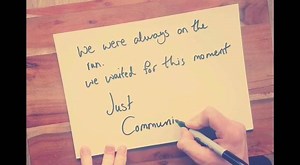 We were always on the
run.
we waited for this moment
Just
Communi